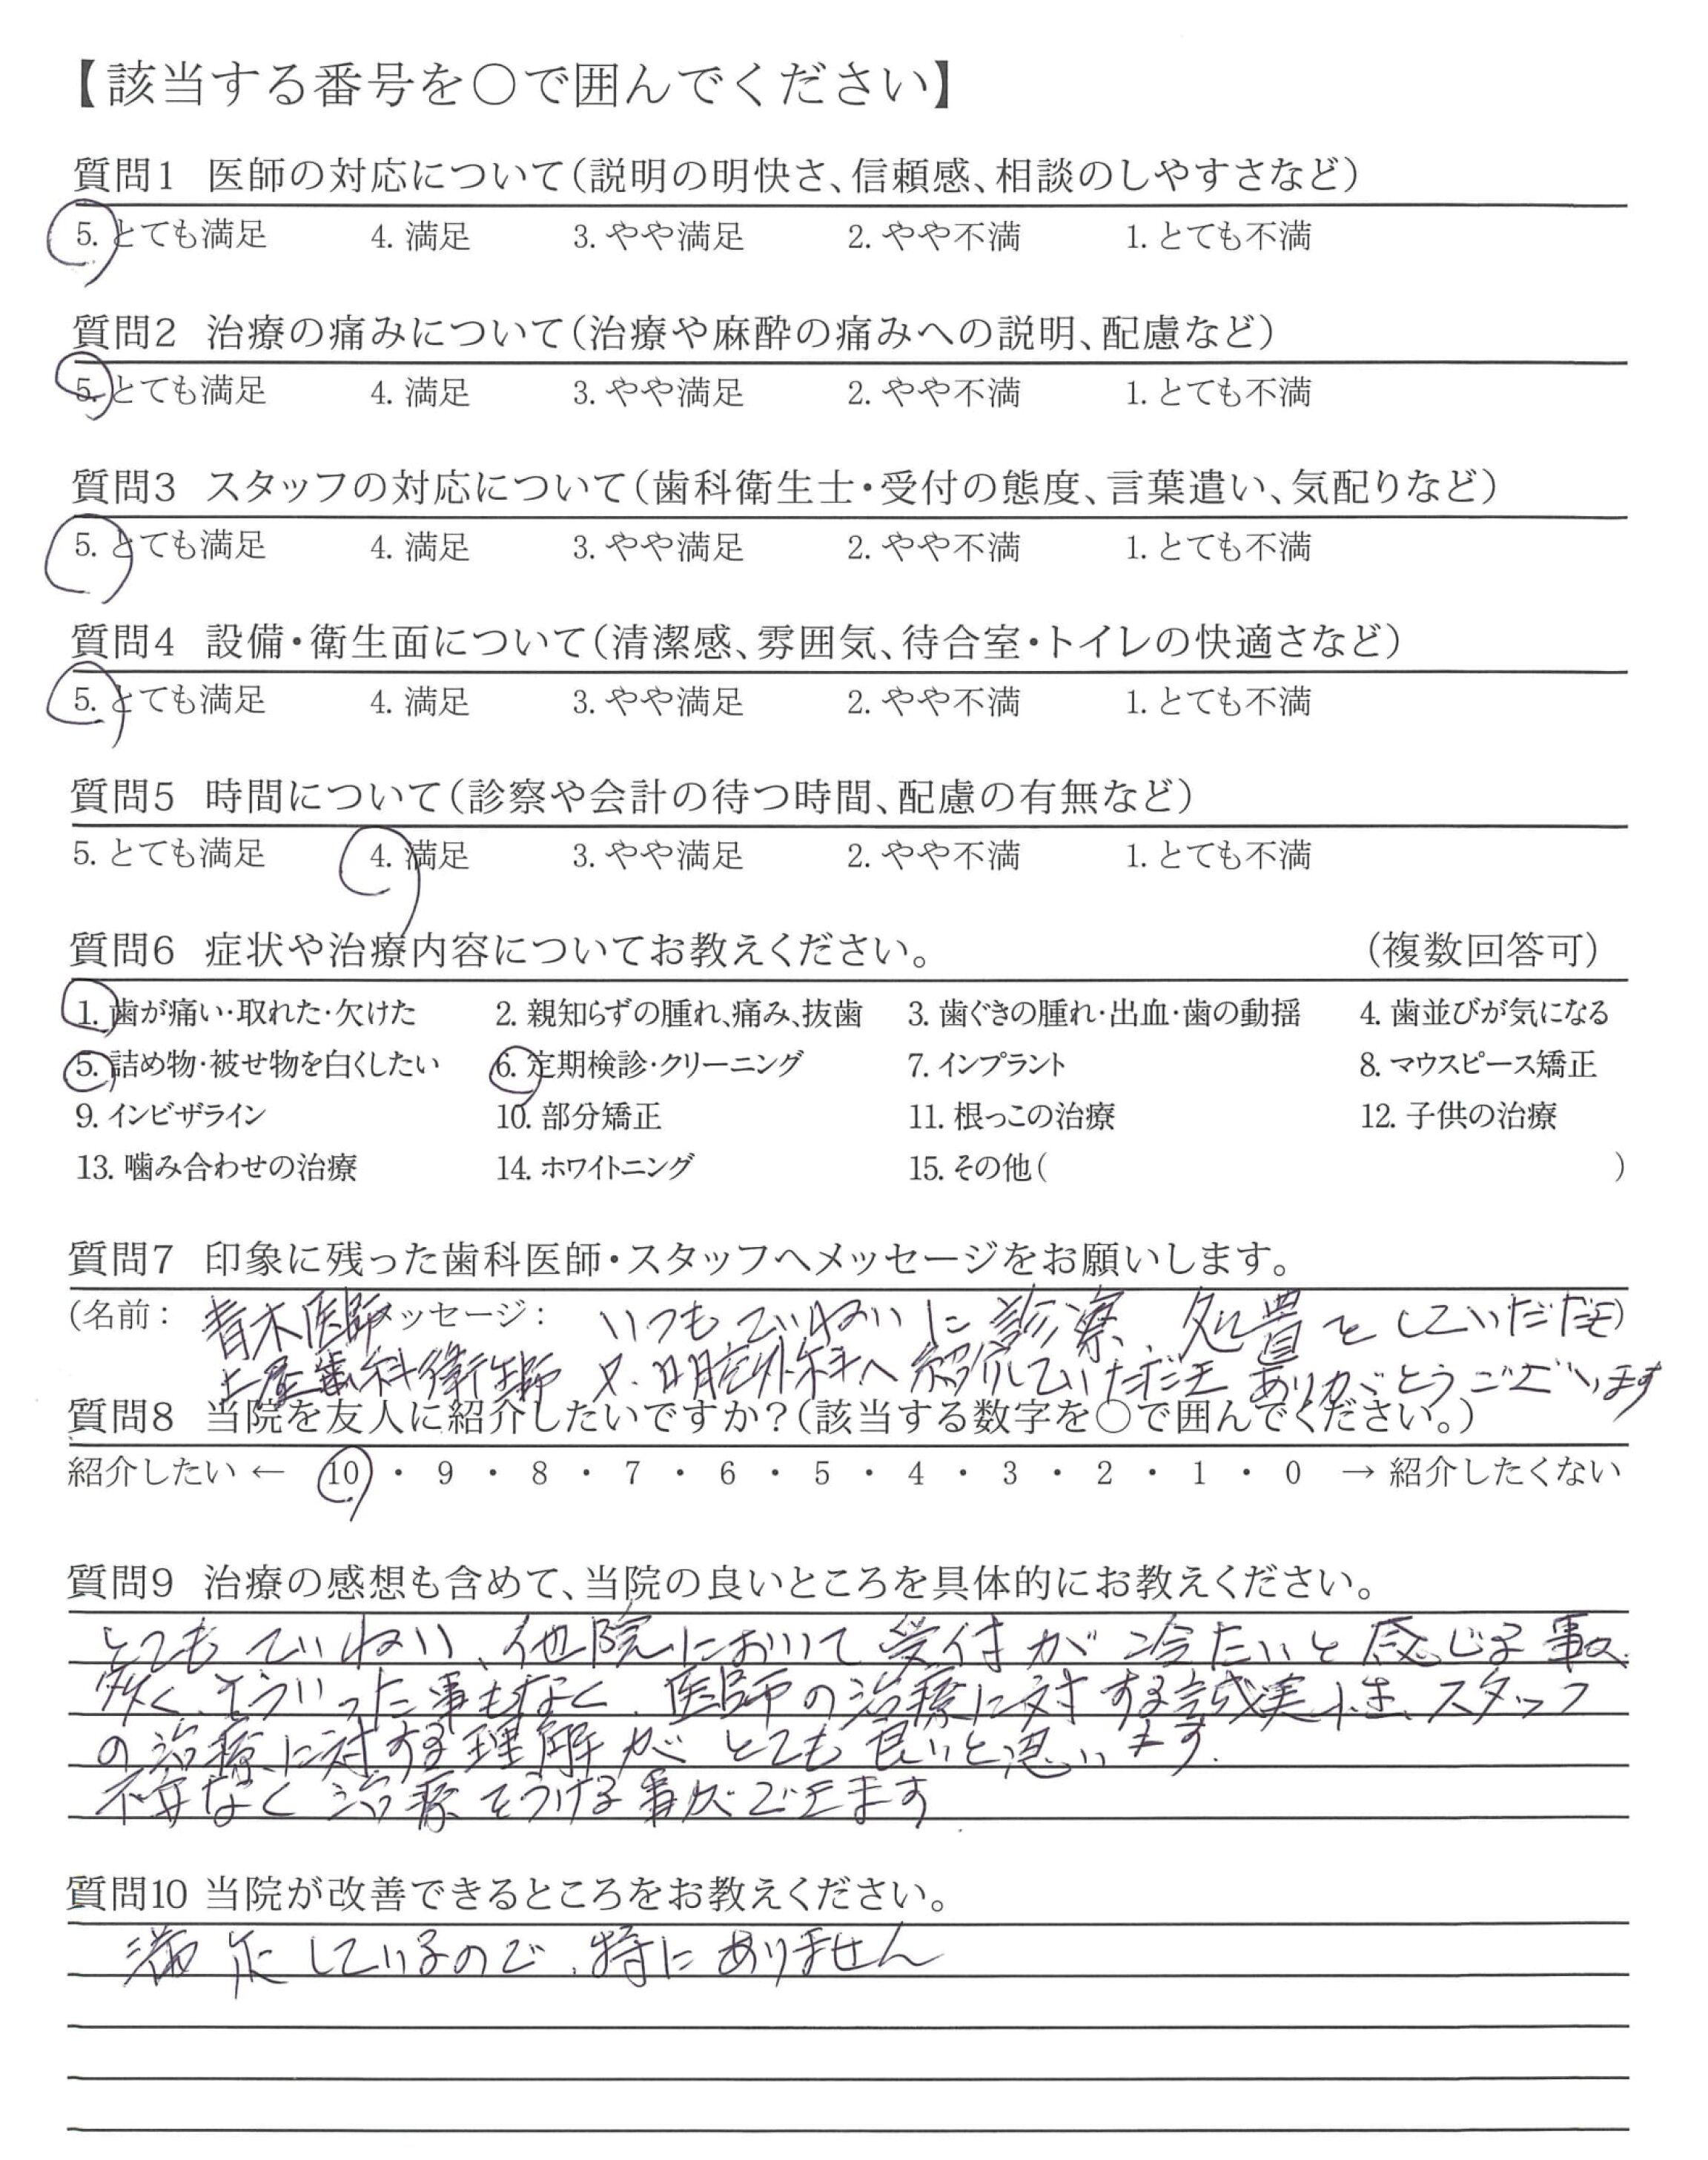 【該当する番号を○で囲んでください】
質問1 医師の対応について（説明の明快さ、信頼感、相談のしやすさなど）
5. とても満足 4. 満足 3. やや満足 2. やや不満 1. とても不満
質問2 治療の痛みについて（治療や麻酔の痛みへの説明、配慮など）
5. とても満足 4. 満足 3. やや満足 2. やや不満 1. とても不満
質問3 スタッフの対応について（歯科衛生士・受付の態度、言葉遣い、気配りなど）
5. とても満足 4. 満足 3. やや満足 2. やや不満 1. とても不満
質問4 設備・衛生面について（清潔感、雰囲気、待合室・トイレの快適さなど）
5. とても満足 4. 満足 3. やや満足 2. やや不満 1. とても不満
質問5 時間について（診察や会計の待つ時間、配慮の有無など）
5. とても満足 4. 満足 3. やや満足 2. やや不満 1. とても不満
質問6 症状や治療内容についてお教えください。 （複数回答可）
1. 歯が痛い・取れた・欠けた 2. 親知らずの腫れ、痛み、抜歯 3. 歯ぐきの腫れ・出血・歯の動揺 4. 歯並びが気になる
5. 詰め物・被せ物を白くしたい 6. 定期検診・クリーニング 7. インプラント 8. マウスピース矯正
9. インビザライン 10. 部分矯正 11. 根っこの治療 12. 子供の治療
13. 噛み合わせの治療 14. ホワイトニング 15. その他（ ）
質問7 印象に残った歯科医師・スタッフへメッセージをお願いします。
（名前： 青木医師 メッセージ： いつもていねいに診察、処置をしていただき）
土屋歯科衛生師 又、口腔外科へ紹介していただき ありがとうございます
質問8 当院を友人に紹介したいですか？（該当する数字を○で囲んでください。）
紹介したい ← 10 ・ 9 ・ 8 ・ 7 ・ 6 ・ 5 ・ 4 ・ 3 ・ 2 ・ 1 ・ 0 → 紹介したくない
質問9 治療の感想も含めて、当院の良いところを具体的にお教えください。
とてもていねい、他院において受付が冷たいと感じる事
多く、そういった事もなく、医師の治療に対する誠実性、スタッフ
の治療に対する理解がとても良いと思います。
不安なく治療をうける事ができます
質問10 当院が改善できるところをお教えください。
満足しているので、特にありません